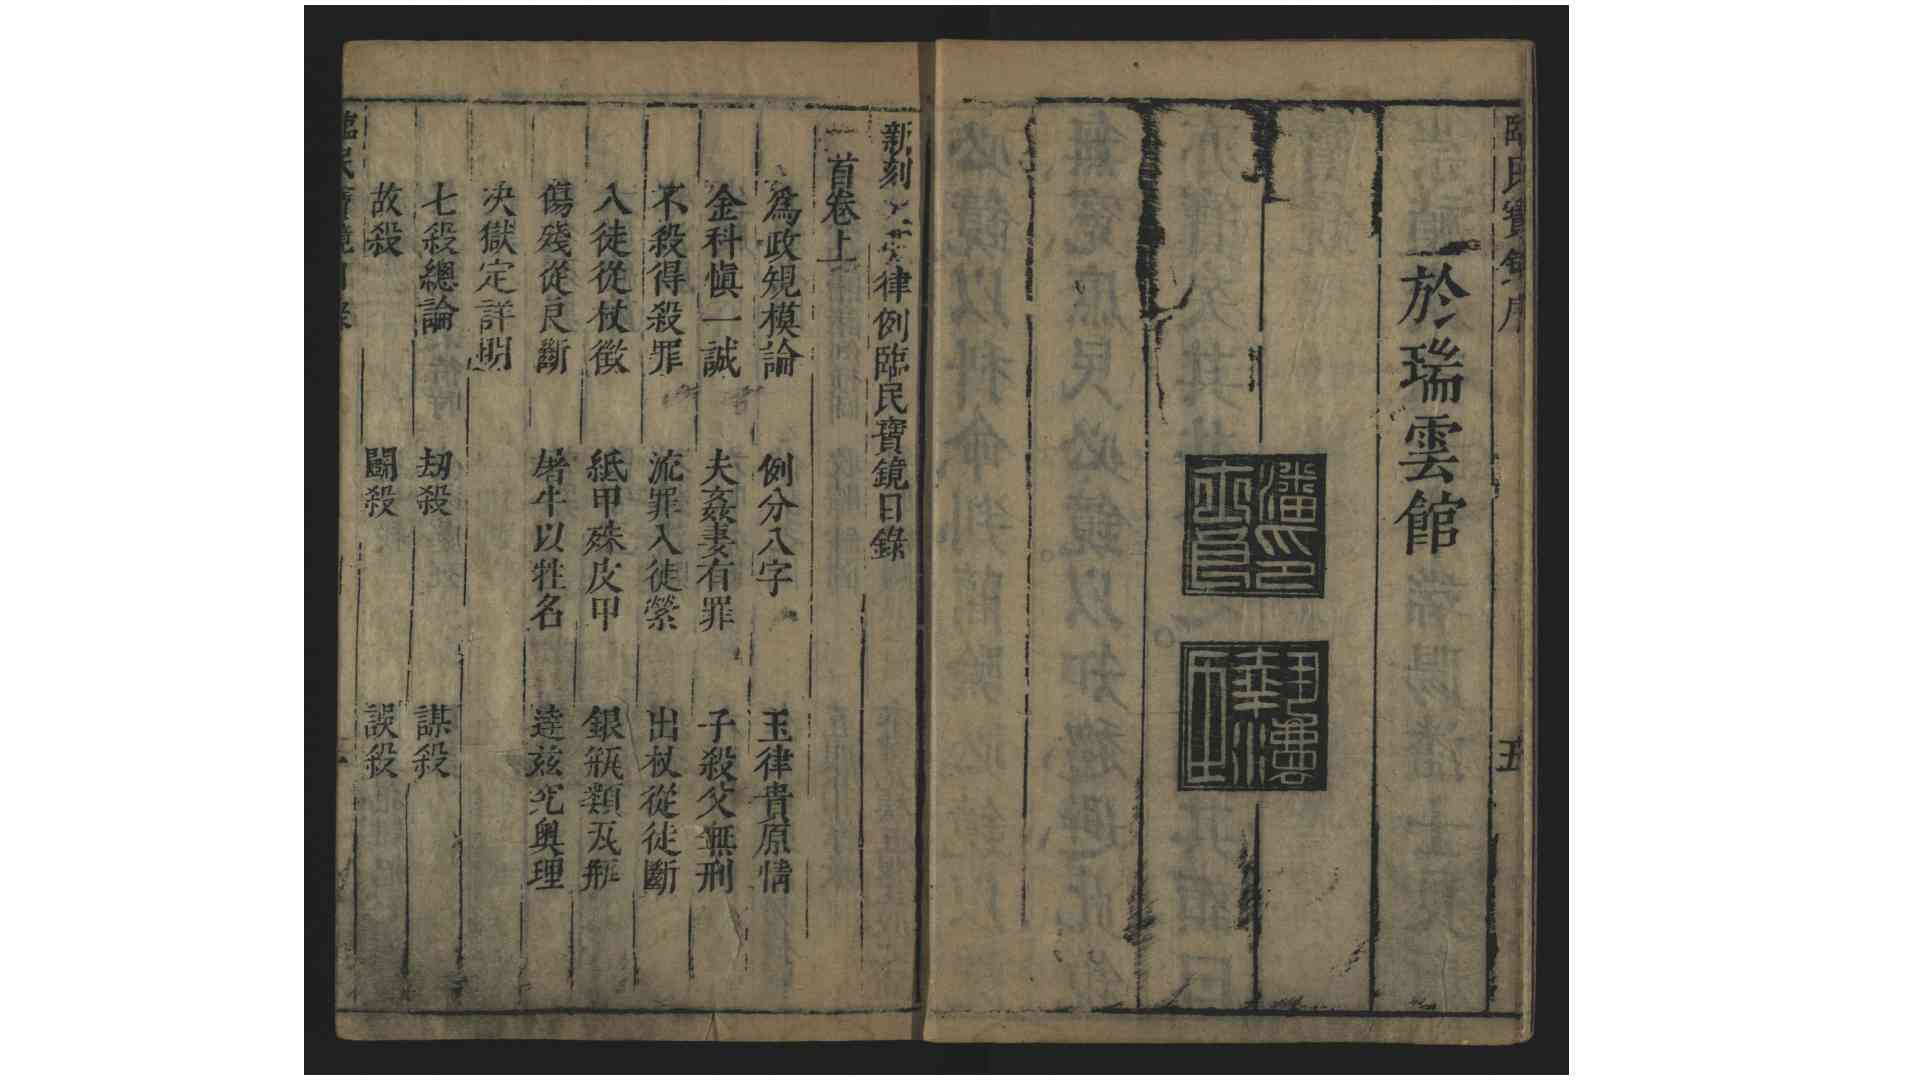 臨民寶鏡序
於瑞雲館
五
潘士良印
新刻律例臨民寶鏡目錄
首卷上
爲政規模論 例分八字 玉律貴原情
金科愼一誠 夫姦妻有罪 子殺父無刑
不殺得殺罪 流罪入徒縈 出杖從徒斷
入徒從杖徵 紙甲殊皮甲 銀瓶類瓦瓶
傷殘從良斷 屠牛以牲名 達茲究奧理
決獄定詳明
七殺總論 劫殺 謀殺
故殺 鬬殺 誤殺
臨民寶鏡目錄